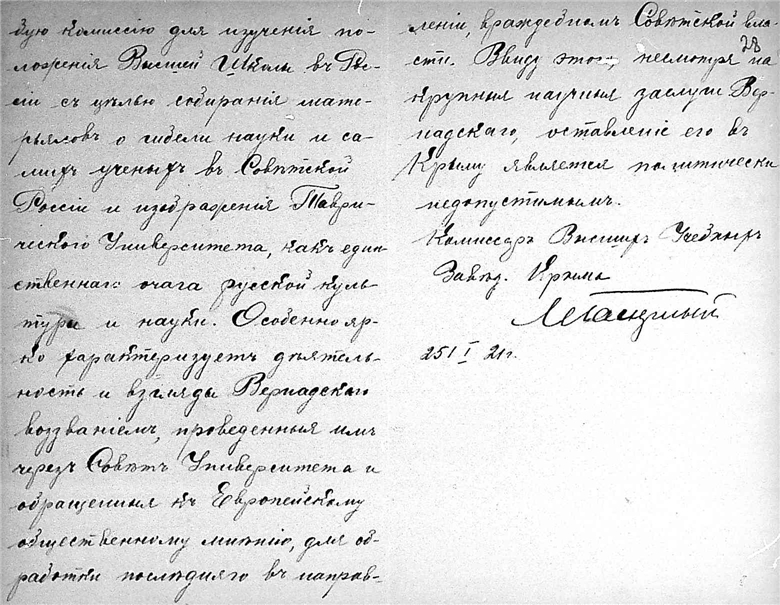 вую комиссію для изученія по-
ложенія Высшей Школы въ Рос-
сіи съ цѣлью собиранія мате-
рьяловъ о гибели науки и са-
михъ ученыхъ въ Совѣтской
Россіи и изображенія Таври-
ческого Университета, какъ един-
ственнаго очага русской куль-
туры и науки. Особенно яр-
ко характеризуетъ дѣятель-
ность и взгляды Вернадского
воззваніемъ, проведенныя имъ
черезъ Совѣтъ Университета и
обращенныя къ Европейскому
общественному мнѣнію, для об-
работки послѣдняго въ направ-
леніи, враждебномъ Совѣтской вла-
28
сти. Ввиду этого, несмотря на
крупныя научныя заслуги Вер-
надскаго, оставленіе его въ
Крыму является политически
недопустимымъ.
Комиссаръ Высшихъ Учебныхъ
Завед. Крыма
25 I 21 г.